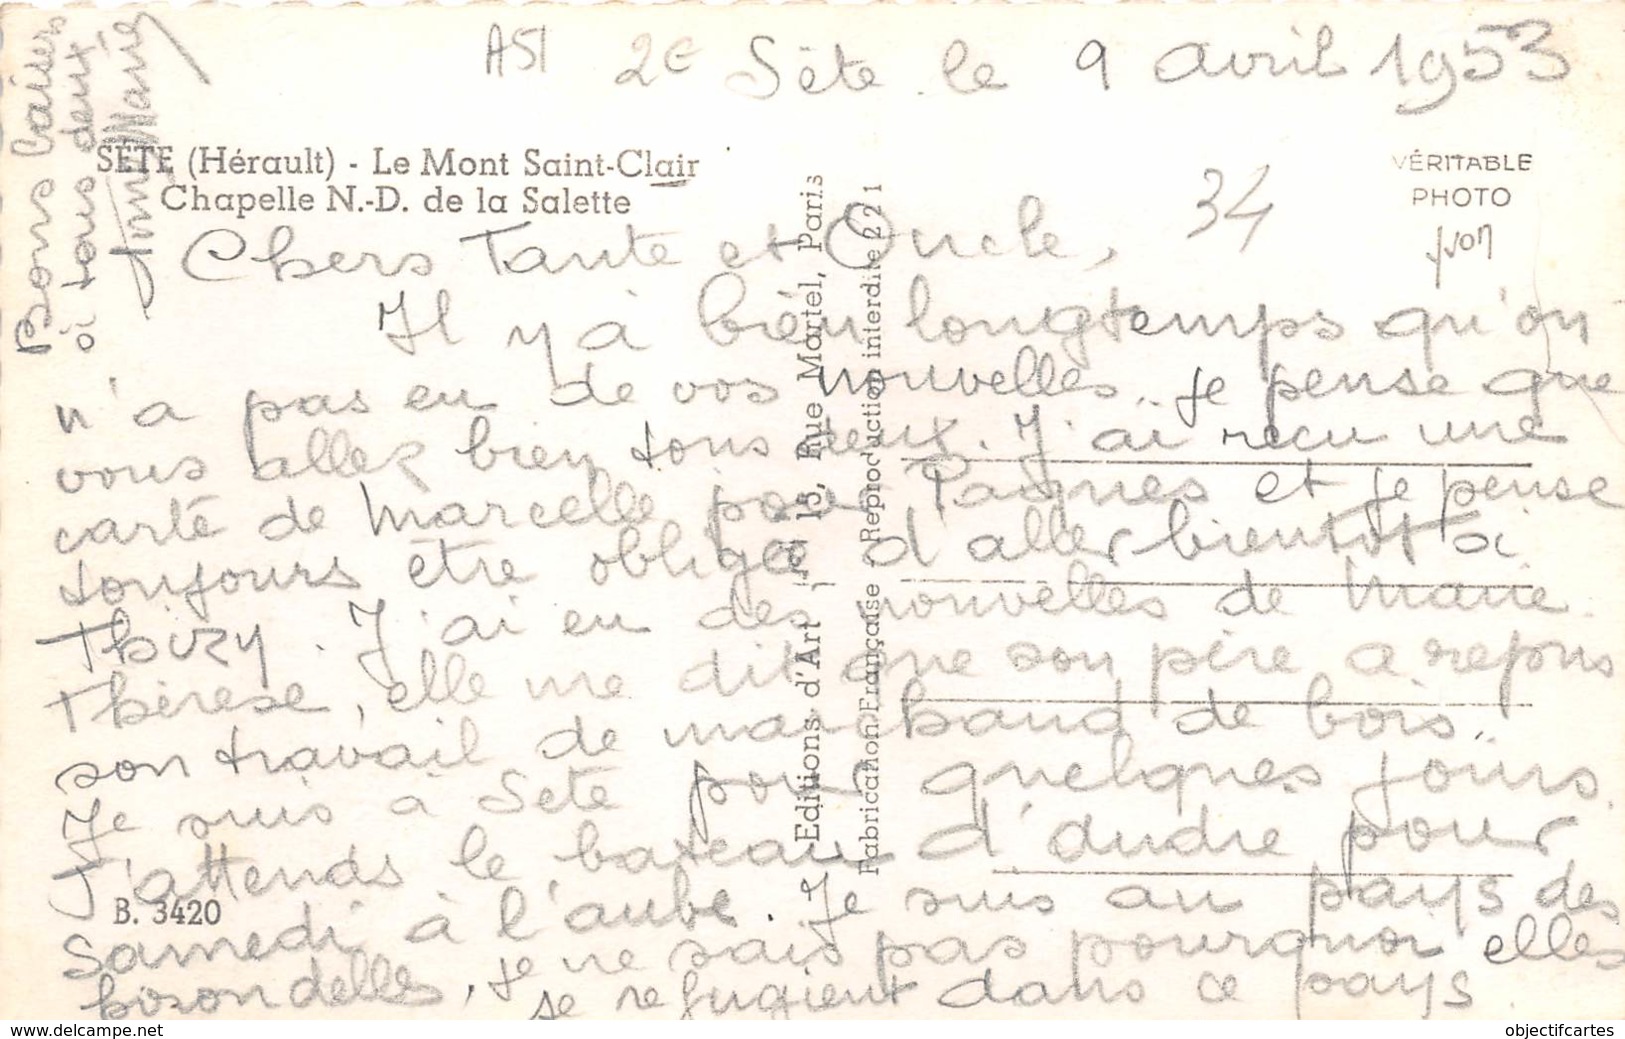 A51 2E Sète le 9 avril 1953
SÈTE (Hérault) - Le Mont Saint-Clair
Chapelle N.-D. de la Salette
34
VÉRITABLE
PHOTO
yvon
Chers Tante et Oncle,
Il y a bien longtemps qu'on
n'a pas eu de vos nouvelles. Je pense que
vous allez bien tous deux. J'ai reçu une
carte de Marcelle pour Paques et je pense
toujours etre obligée d'aller bientot à
Thizy. J'ai eu des nouvelles de Marie
Thérese, elle me dit que son père a repris
son travail de marchand de bois.
Je suis à Sète pour quelques jours.
J'attends le bateau d'andre pour
samedi à l'aube. Je suis au pays des
hirondelles, je ne sais pas pourquoi elles
se refugient dans ce pays
Bons baisers
à tous deux
Anne Marie
Editions d'Art 15, Rue Martel, Paris
Fabrication Française Reproduction interdite 221
B. 3420
www.delcampe.net
objectifcartes